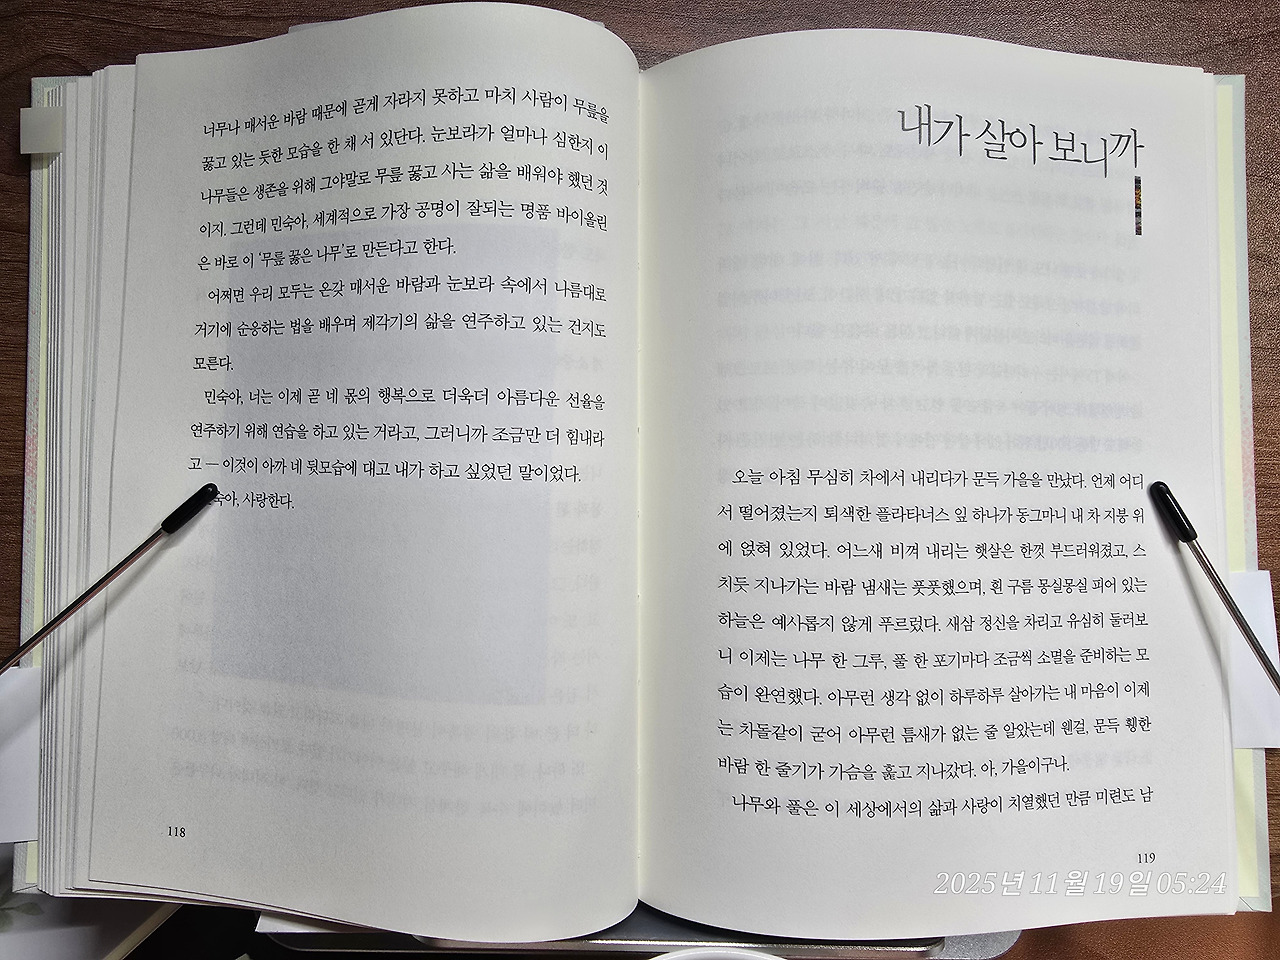 너무나 매서운 바람 때문에 곧게 자라지 못하고 마치 사람이 무릎을
꿇고 있는 듯한 모습을 한 채 서 있단다. 눈보라가 얼마나 심한지 이
나무들은 생존을 위해 그야말로 무릎 꿇고 사는 삶을 배워야 했던 것
이지. 그런데 민숙아, 세계적으로 가장 공명이 잘되는 명품 바이올린
은 바로 이 ‘무릎 꿇은 나무’로 만든다고 한다.
어쩌면 우리 모두는 온갖 매서운 바람과 눈보라 속에서 나름대로
거기에 순응하는 법을 배우며 제각기의 삶을 연주하고 있는 건지도
모른다.
민숙아, 너는 이제 곧 네 몫의 행복으로 더욱더 아름다운 선율을
연주하기 위해 연습을 하고 있는 거라고, 그러니까 조금만 더 힘내라
고 — 이것이 아까 네 뒷모습에 대고 내가 하고 싶었던 말이었다.
숙아, 사랑한다.
118
내가 살아 보니까
오늘 아침 무심히 차에서 내리다가 문득 가을을 만났다. 언제 어디
서 떨어졌는지 퇴색한 플라타너스 잎 하나가 동그마니 내 차 지붕 위
에 얹혀 있었다. 어느새 비껴 내리는 햇살은 한껏 부드러워졌고, 스
치듯 지나가는 바람 냄새는 풋풋했으며, 흰 구름 몽실몽실 피어 있는
하늘은 예사롭지 않게 푸르렀다. 새삼 정신을 차리고 유심히 둘러보
니 이제는 나무 한 그루, 풀 한 포기마다 조금씩 소멸을 준비하는 모
습이 완연했다. 아무런 생각 없이 하루하루 살아가는 내 마음이 이제
는 차돌같이 굳어 아무런 틈새가 없는 줄 알았는데 웬걸, 문득 휑한
바람 한 줄기가 가슴을 훑고 지나갔다. 아, 가을이구나.
나무와 풀은 이 세상에서의 삶과 사랑이 치열했던 만큼 미련도 남
119
2025년 11월 19일 05:24